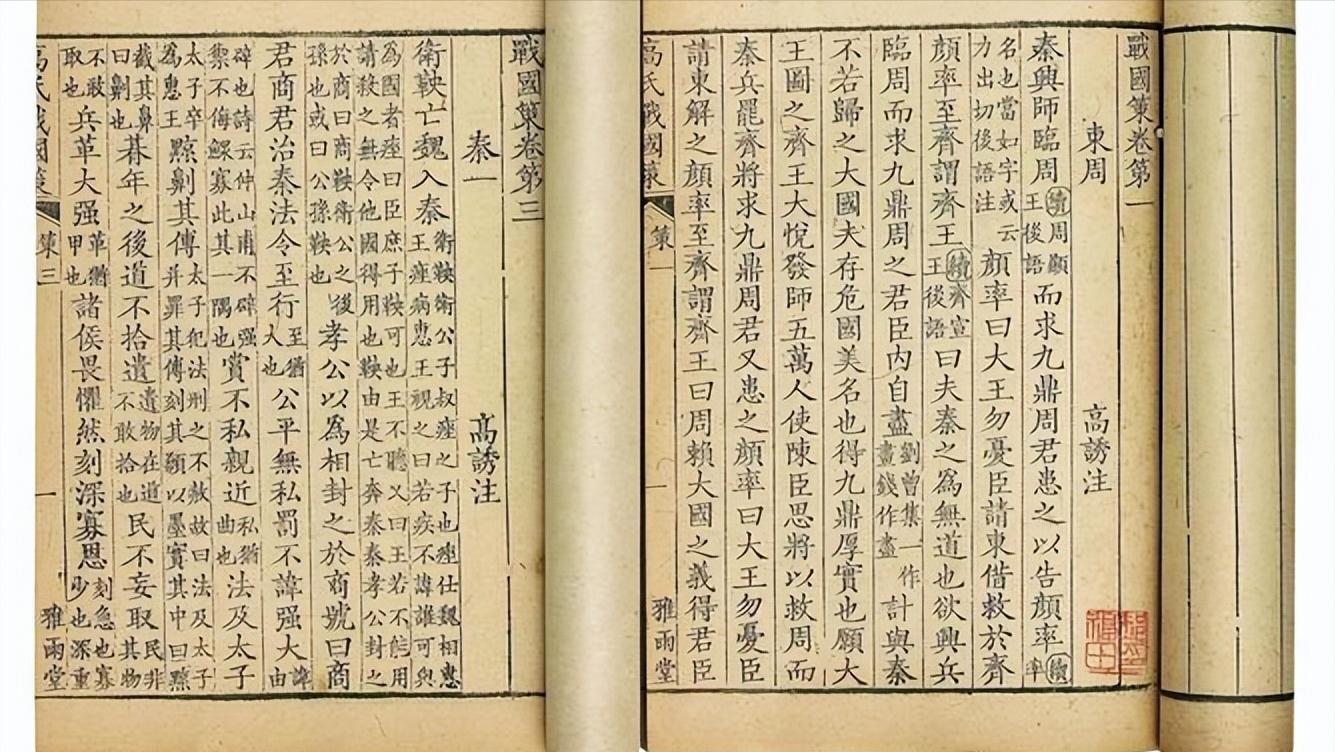 戰國策卷第一
東周 高誘注
秦興師臨周續周顯王後語而求九鼎周君患之以告顔率續率
名也當如字或云力出切後語注顔率曰大王勿憂臣請東借救於齊
顔率至齊謂齊王續齊宣王後語曰夫秦之爲無道也欲興兵
臨周而求九鼎周之君臣內自盡劉曾集一作畫錢作盡計與秦
不若歸之大國夫存危國美名也得九鼎厚實也願大
王圖之齊王大悅發師五萬人使陳臣思將以救周而
秦兵罷齊將求九鼎周君又患之顔率曰大王勿憂臣
請東解之顔率至齊謂齊王曰周賴大國之義得君臣
高氏戰國策 策一 一 雅雨堂
戰國策卷第三
秦一 高誘注
衛鞅亡魏入秦衛鞅衛公子叔痤之子也痤仕魏相惠王痤病惠王視之曰若疾不諱誰可與
爲國者痤曰臣庶子鞅可也王不聽又曰王若不能用請殺之無令他國得用也鞅由是亡奔秦秦孝公封之
於商曰商鞅衛公之後孫也或曰公孫鞅也孝公以爲相封之於商號曰商
君商君治秦法令至行至猶人也公平無私罰不諱强大諱由
辟也詩云仲山甫不辟强禦不侮鰥寡此其一隅也賞不私親近私猶曲也法及太子
太子卒爲惠王黥劓其傅太子犯法刑之不赦故曰法及太子并罪其傅刻其顙以墨實其中曰黥
截其鼻曰劓也朞年之後道不拾遺遺物在道不敢拾也民不妄取民非其物
不敢取也兵革大强革猶甲也諸侯畏懼然刻深寡恩刻急也寡少也深重
高氏戰國策 策三 一 雅雨堂